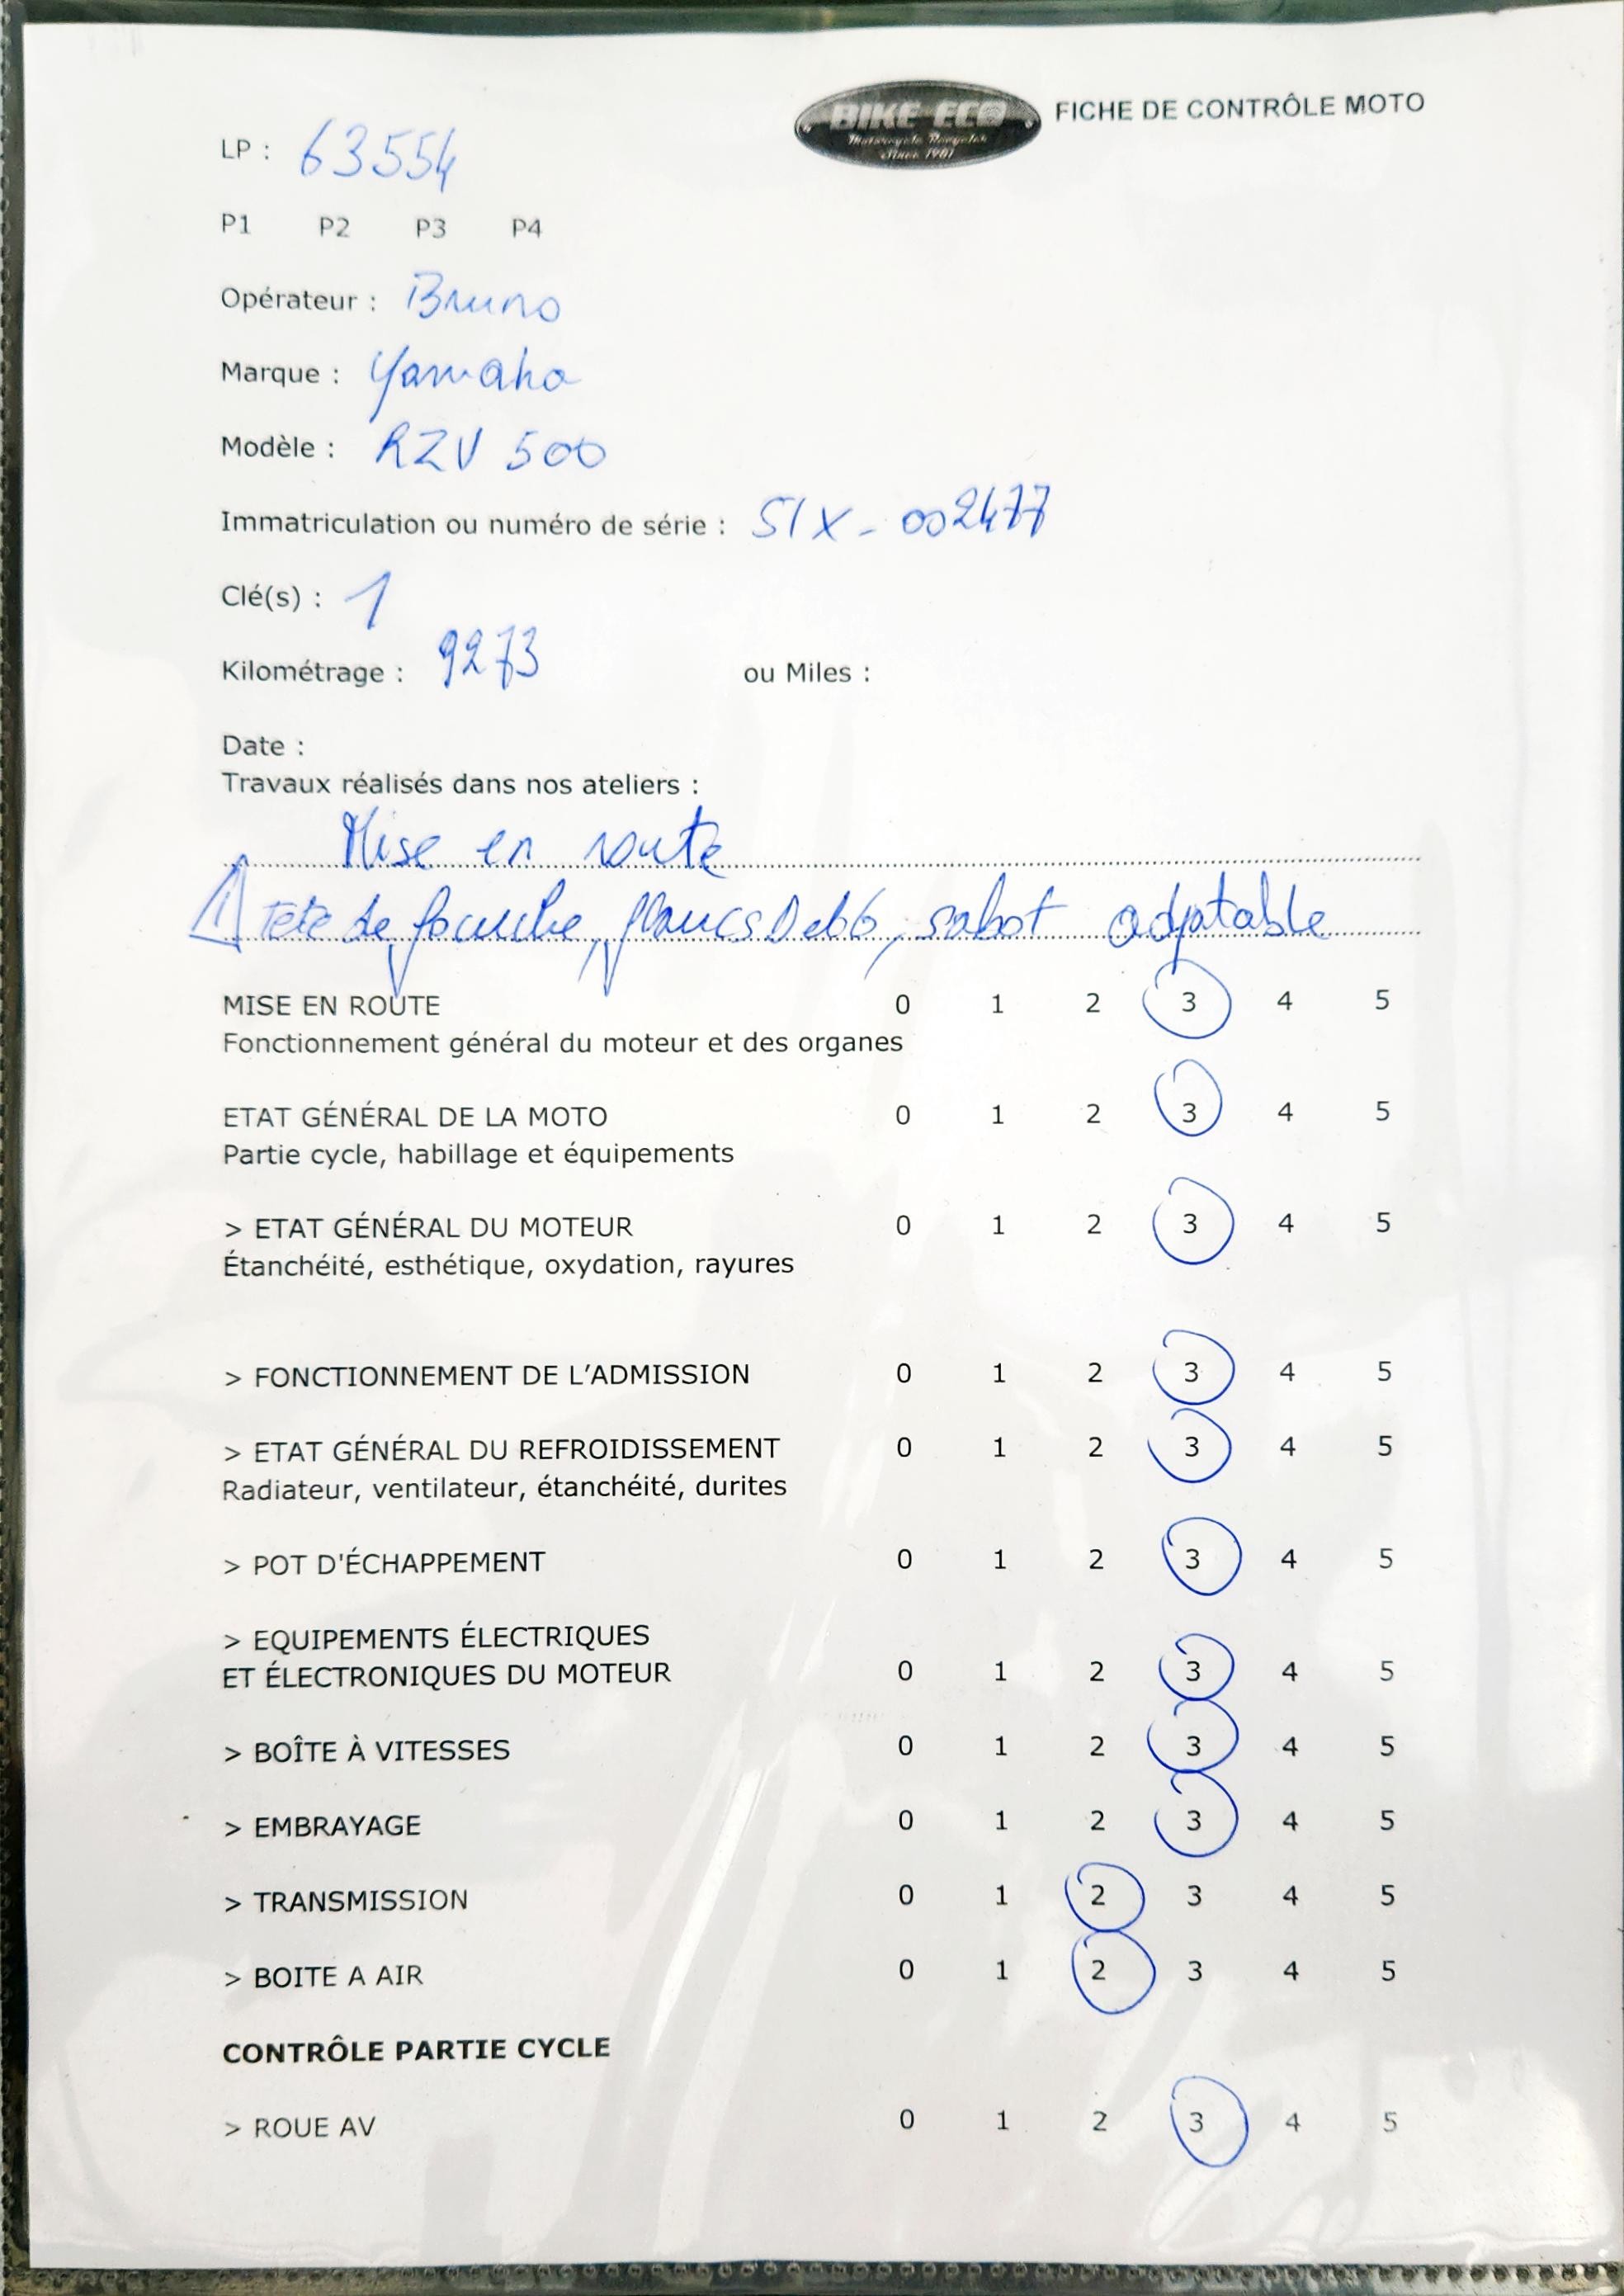 BIKE ECO
Motorcycle Recycler
Since 1981
FICHE DE CONTRÔLE MOTO
LP : 63554
P1 P2 P3 P4
Opérateur : Bruno
Marque : Yamaha
Modèle : RZV 500
Immatriculation ou numéro de série : 51X-002477
Clé(s) : 1
Kilométrage : 9273 ou Miles :
Date :
Travaux réalisés dans nos ateliers :
Mise en route
Tete de fourche, flancs , sabot adptable
MISE EN ROUTE 0 1 2 3 4 5
Fonctionnement général du moteur et des organes
ETAT GÉNÉRAL DE LA MOTO 0 1 2 3 4 5
Partie cycle, habillage et équipements
> ETAT GÉNÉRAL DU MOTEUR 0 1 2 3 4 5
Étanchéité, esthétique, oxydation, rayures
> FONCTIONNEMENT DE L'ADMISSION 0 1 2 3 4 5
> ETAT GÉNÉRAL DU REFROIDISSEMENT 0 1 2 3 4 5
Radiateur, ventilateur, étanchéité, durites
> POT D'ÉCHAPPEMENT 0 1 2 3 4 5
> EQUIPEMENTS ÉLECTRIQUES
ET ÉLECTRONIQUES DU MOTEUR 0 1 2 3 4 5
> BOÎTE À VITESSES 0 1 2 3 4 5
> EMBRAYAGE 0 1 2 3 4 5
> TRANSMISSION 0 1 2 3 4 5
> BOITE A AIR 0 1 2 3 4 5
CONTRÔLE PARTIE CYCLE
> ROUE AV 0 1 2 3 4 5